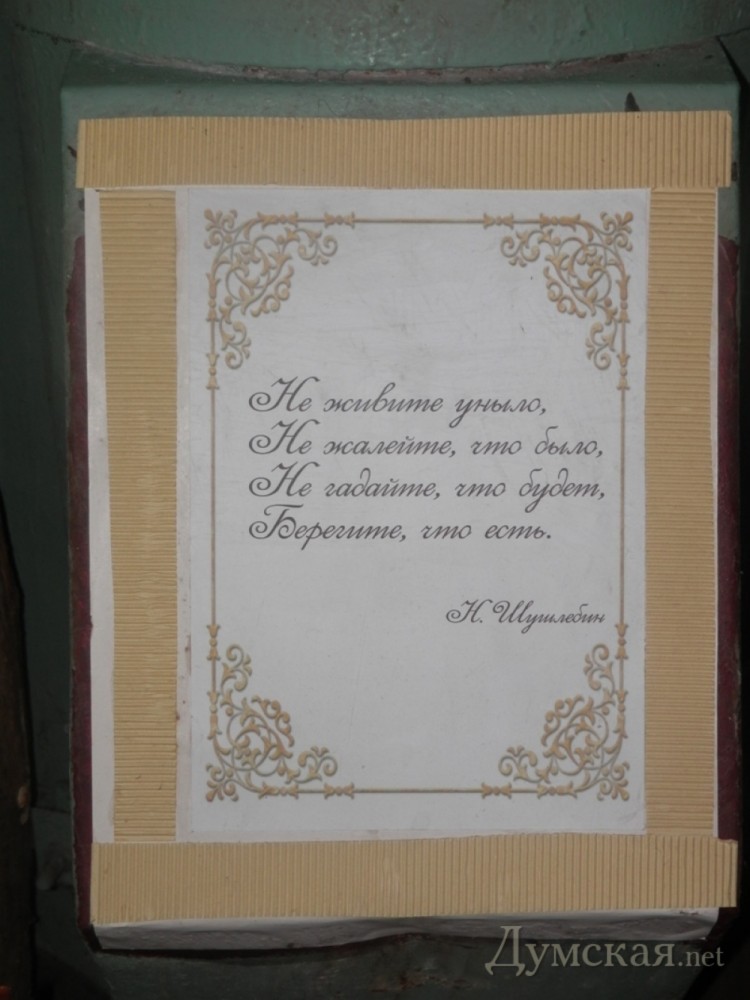 Не живите уныло,
Не жалейте, что было,
Не гадайте, что будет,
Берегите, что есть.
Н. Шушлебин
Думская.net